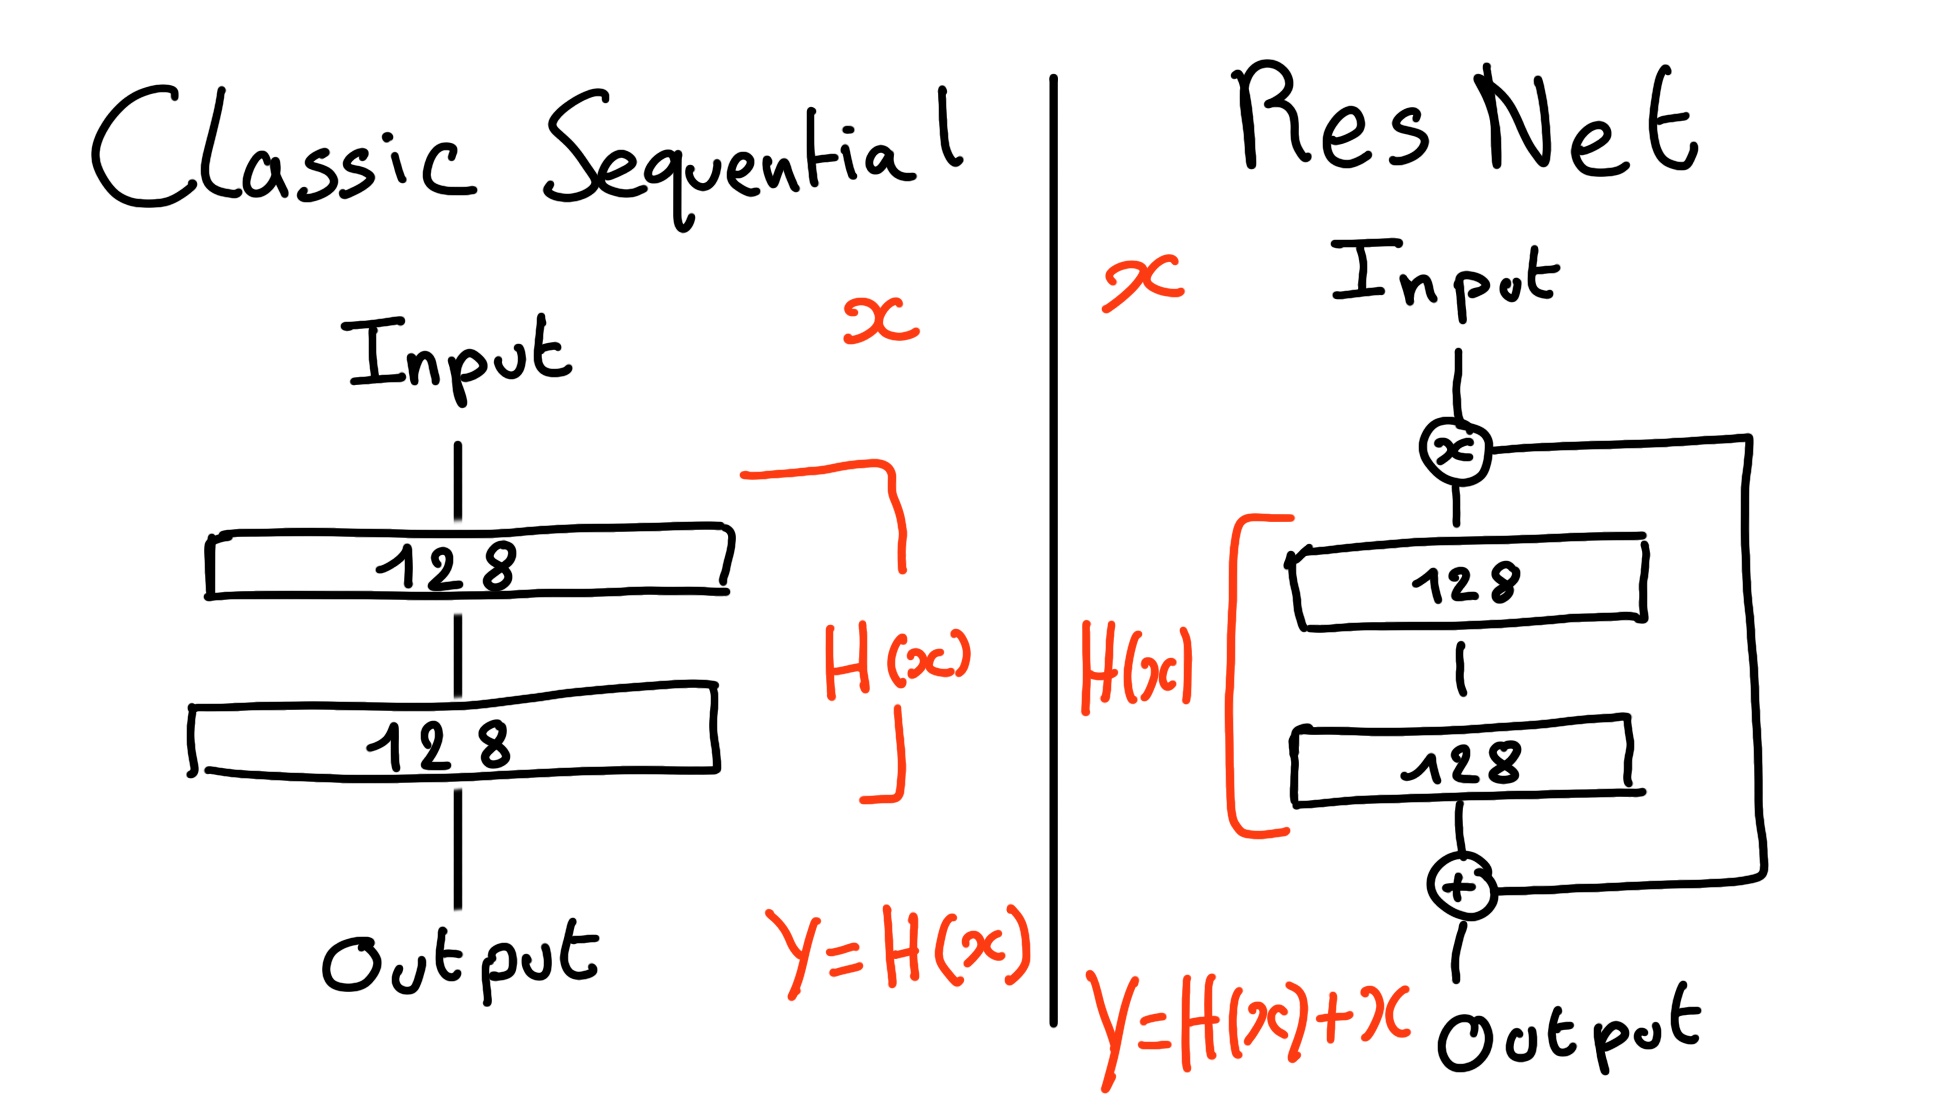 Classic Sequential
Input
x
128
128
H(x)
Output
Y=H(x)
Res Net
x
Input
x
128
H(x)
128
+
Y=H(x)+x
Output